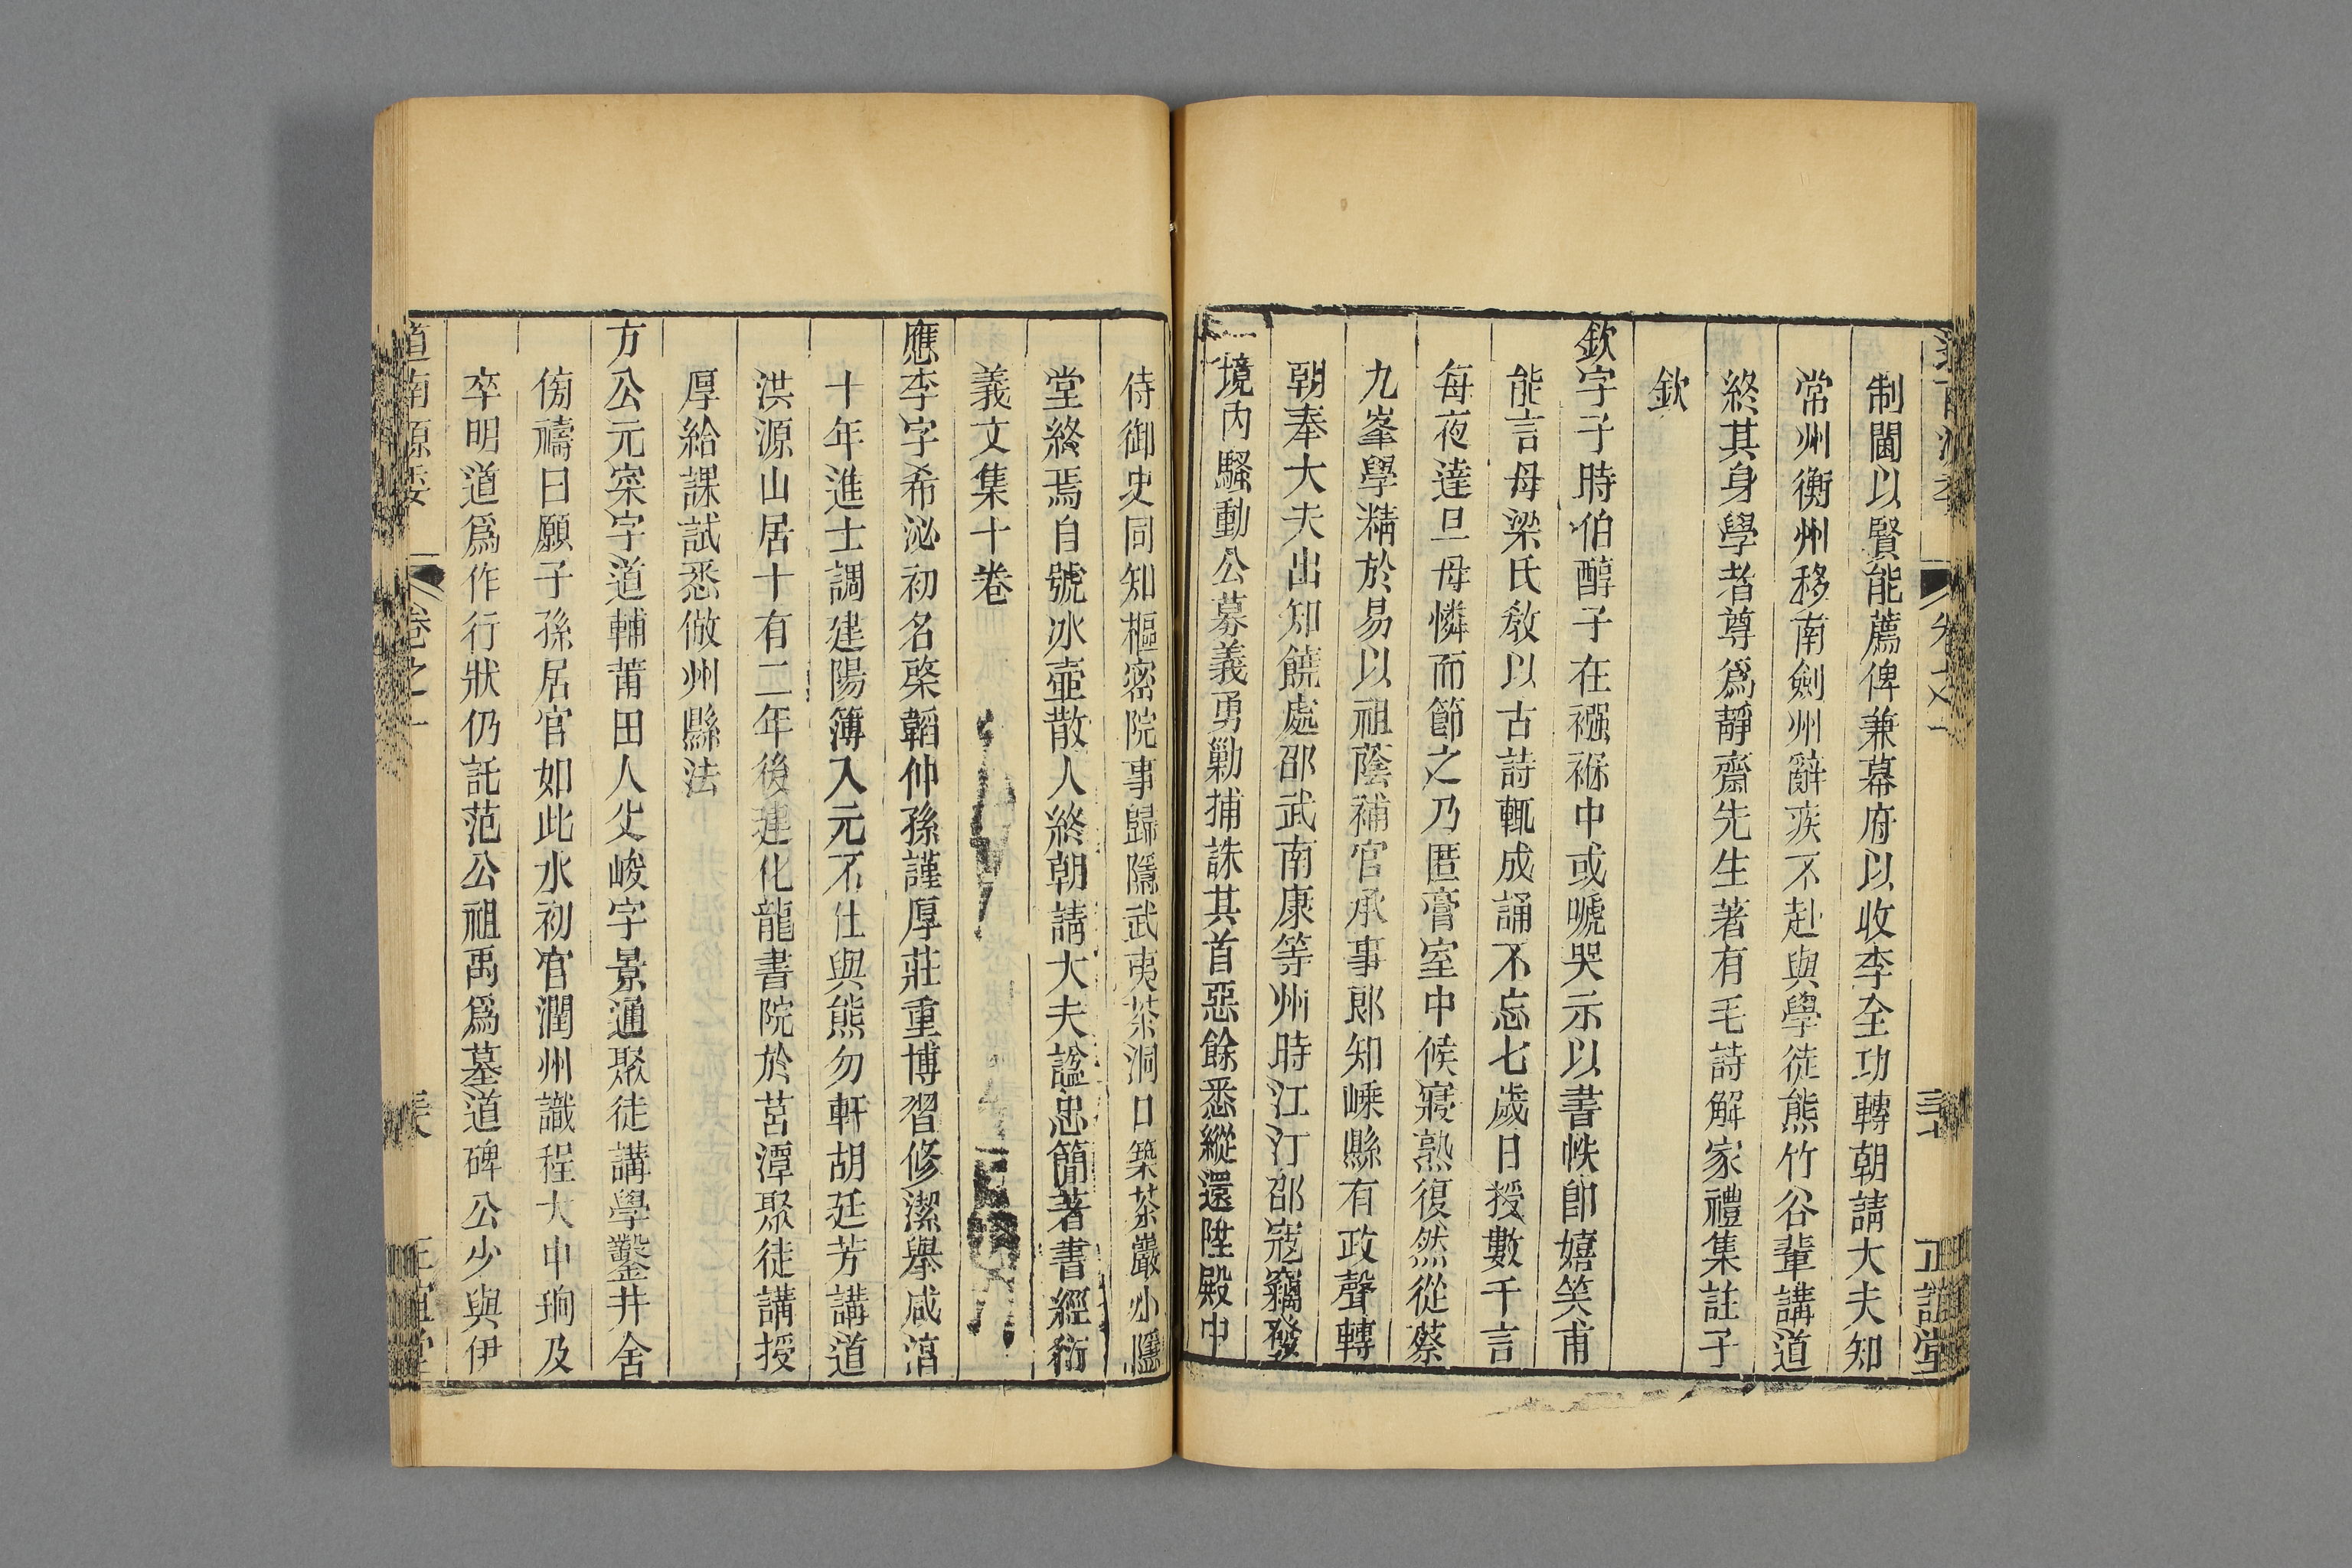 制閫以賢能薦俾兼幕府以收李全功轉朝請大夫知
常州衡州移南劍州辭疾不赴與學徒熊竹谷輩講道
終其身學者尊爲靜齋先生著有毛詩解家禮集註子
欽
欽字子時伯醇子在襁褓中或嗁哭示以書帙卽嬉笑甫
能言母梁氏敎以古詩輒成誦不忘七歲日授數千言
每夜達旦母憐而節之乃匿膏室中候寢熟復然從蔡
九峯學精於易以祖蔭補官承事郎知嵊縣有政聲轉
朝奉大夫出知饒處邵武南康等州時江汀邵寇竊發
一境內騷動公募義勇勦捕誅其首惡餘悉縱還陞殿中
侍御史同知樞密院事歸隱武夷茶洞口築茶巖小隱
堂終焉自號冰壺散人終朝請大夫諡忠簡著書經衍
義文集十卷
應李字希泌初名棨韜仲孫謹厚莊重博習修潔舉咸淳
十年進士調建陽簿入元不仕與熊勿軒胡廷芳講道
洪源山居十有二年後建化龍書院於莒潭聚徒講授
厚給課試悉倣州縣法
方公元寀字道輔莆田人父峻字景通聚徒講學鑿井舍
傍禱曰願子孫居官如此水初官潤州識程大中珦及
卒明道爲作行狀仍託范公祖禹爲墓道碑公少與伊
道南源委
卷之一
正誼堂